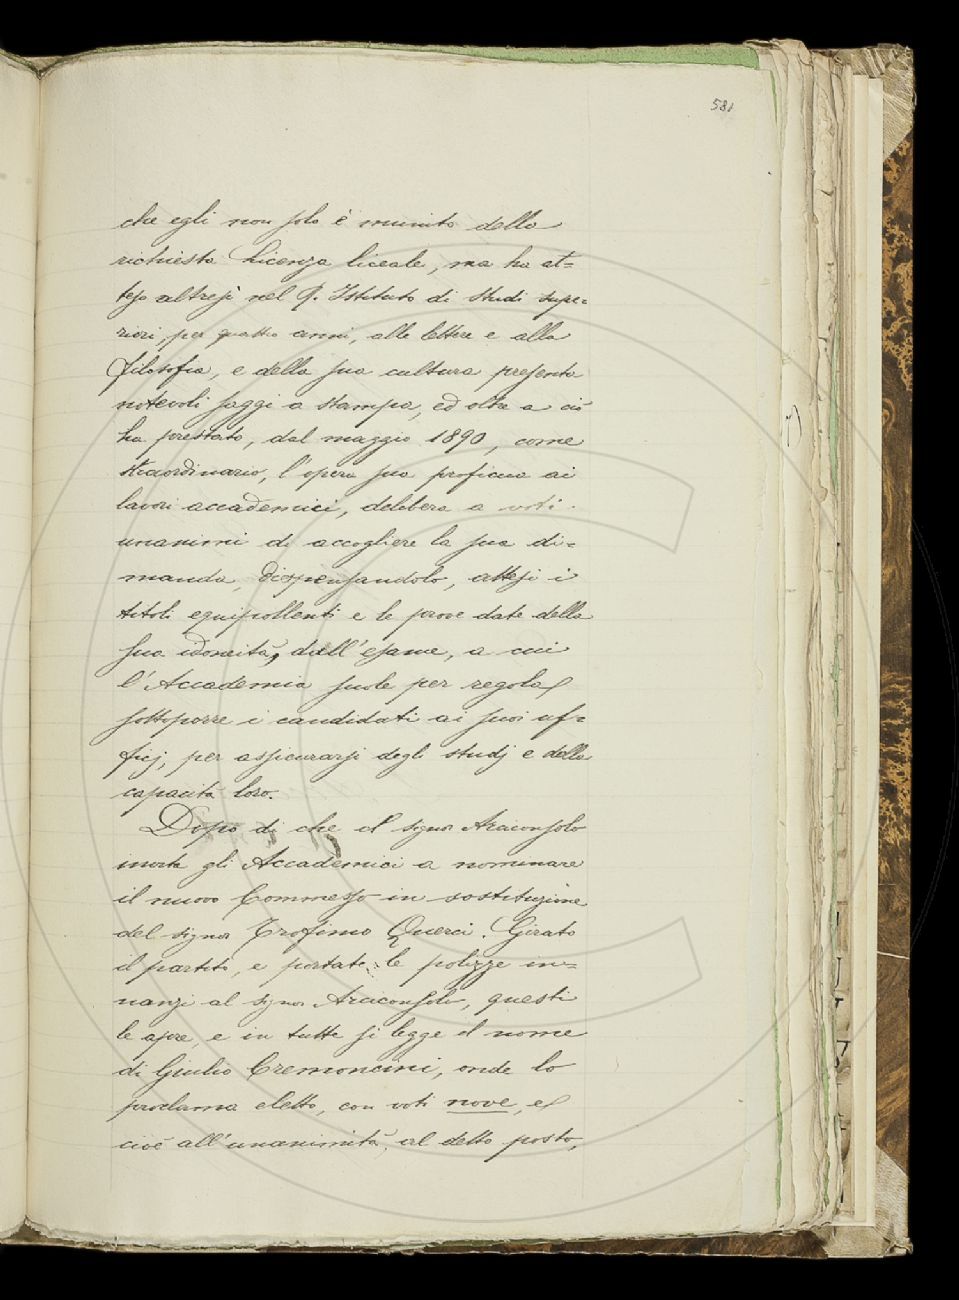 581
che egli non solo è munito della
richiesta Licenza liceale, ma ha at=
teso altresì nel R. Istituto di Studi supe=
riori, per quattro anni, alle lettere e alla
filosofia, e della sua cultura presenta
notevoli saggi a stampa, ed oltre a ciò
ha prestato, dal maggio 1890, come
straordinario, l'opera sua proficua ai
lavori accademici, delibera a voti
unanimi di accogliere la sua di=
manda, dispensandolo, attesi i
titoli equipollenti e le prove date della
sua idoneità, dall'esame, a cui
l'Accademia suole per regola
sottoporre i candidati ai suoi uf=
ficj, per assicurarsi degli studj e della
capacità loro.
Dopo di che il signor Arciconsolo
invita gli Accademici a nominare
il nuovo Commesso in sostituzione
del signor Trofimo Querci. Girato
il partito, e portate le polizze in=
nanzi al signor Arciconsolo, questi
le apre, e in tutte si legge il nome
di Giulio Cremoncini, onde lo
proclama eletto, con voti nove, e
cioè all'unanimità, al detto posto,